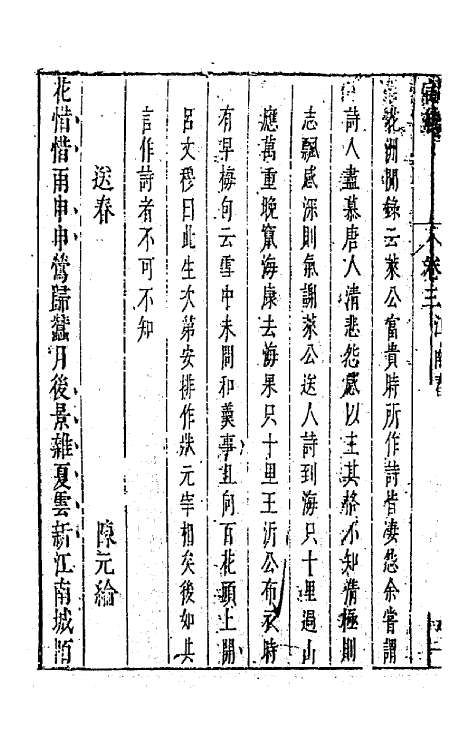 卷三 江南春
花洲閒錄云萊公富貴時所作詩皆凄怨余嘗謂
詩人盡慕唐人清悲怨感以主其格不知清極則
志飄感深則氣謝萊公送人詩到海只十里過山
應萬重晚竄海康去海果只十里王沂公布衣時
有早梅句云雪中未問和羹事且向百花頭上開
呂文穆曰此生次第安排作狀元宰相矣後如其
言作詩者不可不知
送春 陳元綸
花惜惜雨申申鶯歸蠶月後景雜夏雲新江南城陌